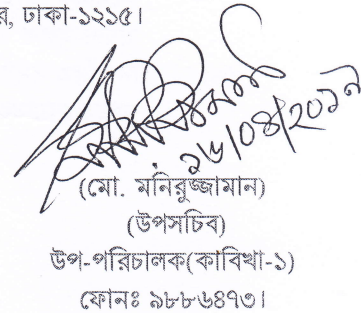 র, ঢাকা-১২১৫।
১৬/০৪/২০১৭
(মো. মনিরুজ্জামান)
(উপসচিব)
উপ-পরিচালক(কাবিখা-১)
ফোনঃ ৯৮৮৬৪৭৩।